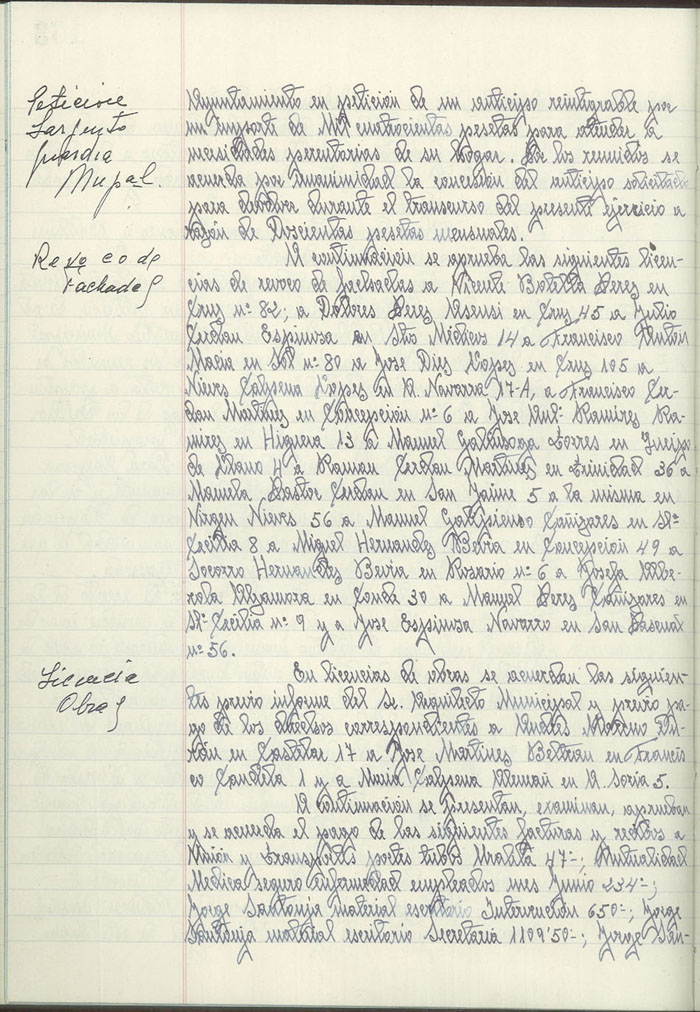 Peticion
Sargento
guardia
Mupal.
Ayuntamiento en petición de un anticipo reintegrable por
un importe de Mil cuatrocientas pesetas para atender la
necesidades perentorias de su hogar. De los reunidos se
acuerda por unanimidad la concesión del anticipo solicitado
para devolver durante el transcurso del presente ejercicio a
razón de Doscientas pesetas mensuales.
Revoco de
Fachadas
A continuación se aprueba las siguientes licen-
cias de revoco de fachadas a Vicente Botella Perez en
Cruz nº 82; a Dolores Perez Asensi en Cruz 45 a Julio
Cerdan Espinosa en Sto Médicos 14 a Francisco Antón
Macia en Sol nº 80 a Jose Diez Lopez en Cruz 105 a
Nieves Calpena Lopez en A. Navarra 17-A, a Francisco Cer-
dan Martinez en Concepción nº 6 a Jose Antº Ramirez Ra-
mires en Higuera 13 a Manuel Galinsoga Torres en
de Llano 4 a Raman Cerdan Martinez en Trinidad 36 a
Manuela Pastor Cerdan en San Jaime 5 a la misma en
Virgen Nieves 56 a Manuel Galipienso Cañizares en Stª
Cecilia 8 a Miguel Hernandez Bevia en Concepción 49 a
Socorro Hernandez Bevia en Rosario nº 6 a Josefa Albe-
rola Algamora en Conde 30 a Manuel Perez Cañizares en
Stª Cecilia nº 9 y a Jose Espinosa Navarro en San Pascual
nº 56.
Licencia
Obras
En licencias de obras se acuerdan las siguien-
tes previo informe del Sr. Arquitecto Municipal y previo pa-
go de los derechos correspondientes a Andrés Moreno
en Castelar 17 a Jose Martinez Beltrán en Francis
co Candela 1 y a Maria Calpena Alemañ en A. Soria 5.
A continuación se presentan, examinan, aprueban
y se acuerda el pago de las siguientes facturas y recibos a
Unión y transportes portes tubos Uralita 47=; Mutualidad
Medica seguro enfermedad empleados mes Junio 234=;
Jorge Santonja material escritorio Intervención 650=; Jorge
Santonja material escritorio Secretaria 1109'50=; Jorge San-